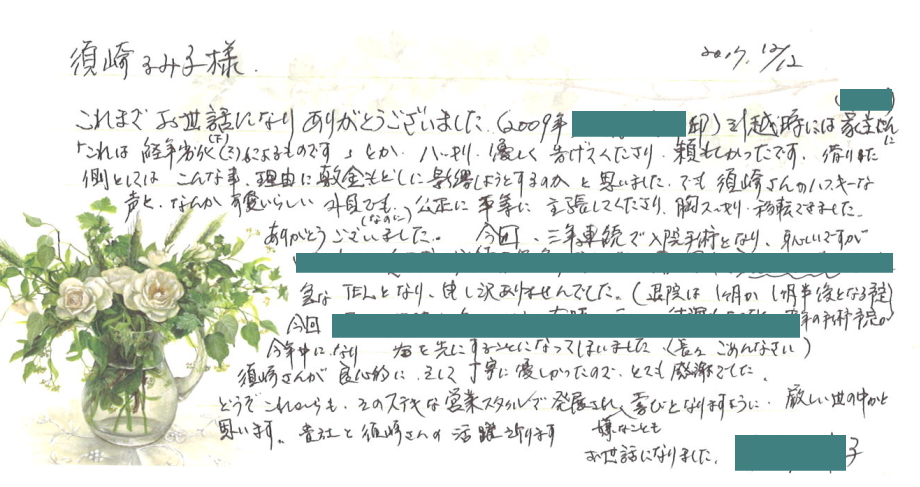 須崎るみ子様.
2017. 12/12
これまで お世話になり ありがとうございました。(2009年
引越時には 家主さんに
「これは 経年劣化によるものです」とか、ハッキリ、優しく 告げてくださり、頼もしかったです。借りた
側としては こんな事、理由に 敷金もどしに影響しようとするのか と思いました。でも 須崎さんのハスキーな
声と、なんか 可愛いらしい 外見でも、(なのに) 公正に 平等に 主張してくださり、胸スッキリ 移転できました。
ありがとうございました。 今回、三年連続で入院手術となり、恥しいですが
急な TELとなり、申し訳ありませんでした。(退院は 1ヶ月か 1ヶ月半後となる程)
今回
今年中になり を先にすることになってしまいました (長々 ごめんなさい)
須崎さんが 良心的に、そして 丁寧に優しかったので、とても 感謝でした。
どうぞ これからも、そのステキな営業スタイルで 発展され、喜びとなりますように。厳しい世の中かと
思います。貴社と 須崎さんの 活躍 祈ります 嫌なことも
お世話になりました。
子